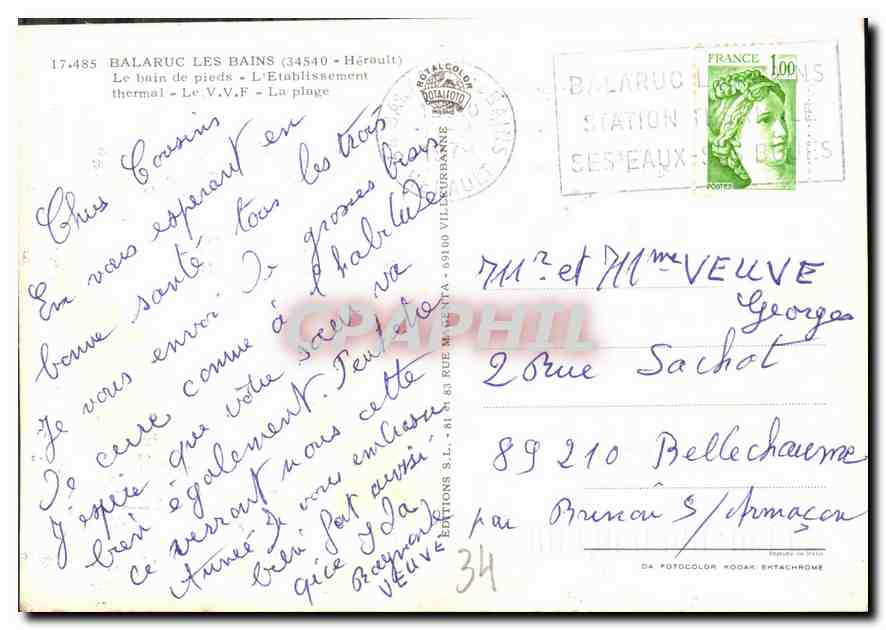 17.485 BALARUC LES BAINS (34540 - Hérault)
Le bain de pieds - L'Etablissement
thermal - Le V.V.F - La plage
Chers Cousins
En vous esperant en
bonne santé, tous les trois
Je vous envoi de grosses bises
De cure comme à l'habitude
J'espère que votre soeur va
bien également. Peut être
ce verront nous cette
Année Je vous embrasse
bien fort aussi
qice Ida
Raymonde
VEUVE
EDITIONS S.L. - 81 et 83 RUE MAGENTA - 69100 VILLEURBANNE
ROTALCOLOR
ROTALFOTO
BAINS
HERAULT
BALARUC LES BAINS
STATION
SES EAUX BOUES
FRANCE 1,00
POSTES
Mr et Mme VEUVE
Georges
2 Rue Sachot
89 210 Bellechaume
par Brinon S/Armaçon
Reprodotto in Italia
DA FOTOCOLOR KODAK EKTACHROME
34
CPAPHIL